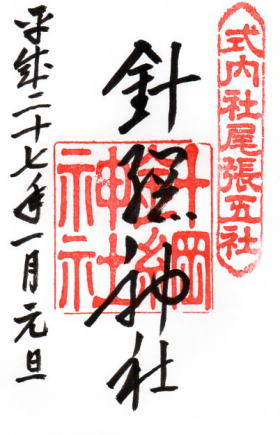 式内社尾張五社
針綱神社
針綱神社
平成二十七年一月元旦